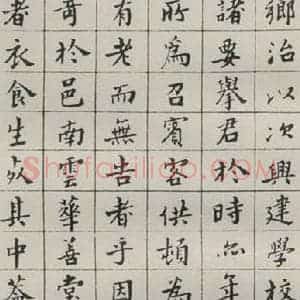 鄉治以次興建學校
諸要舉君於時亦年
所為召賓客供頓為
有老而無告者乎因
於邑南雲華善堂
者衣食生其中蓋
Shufaziliao.COM